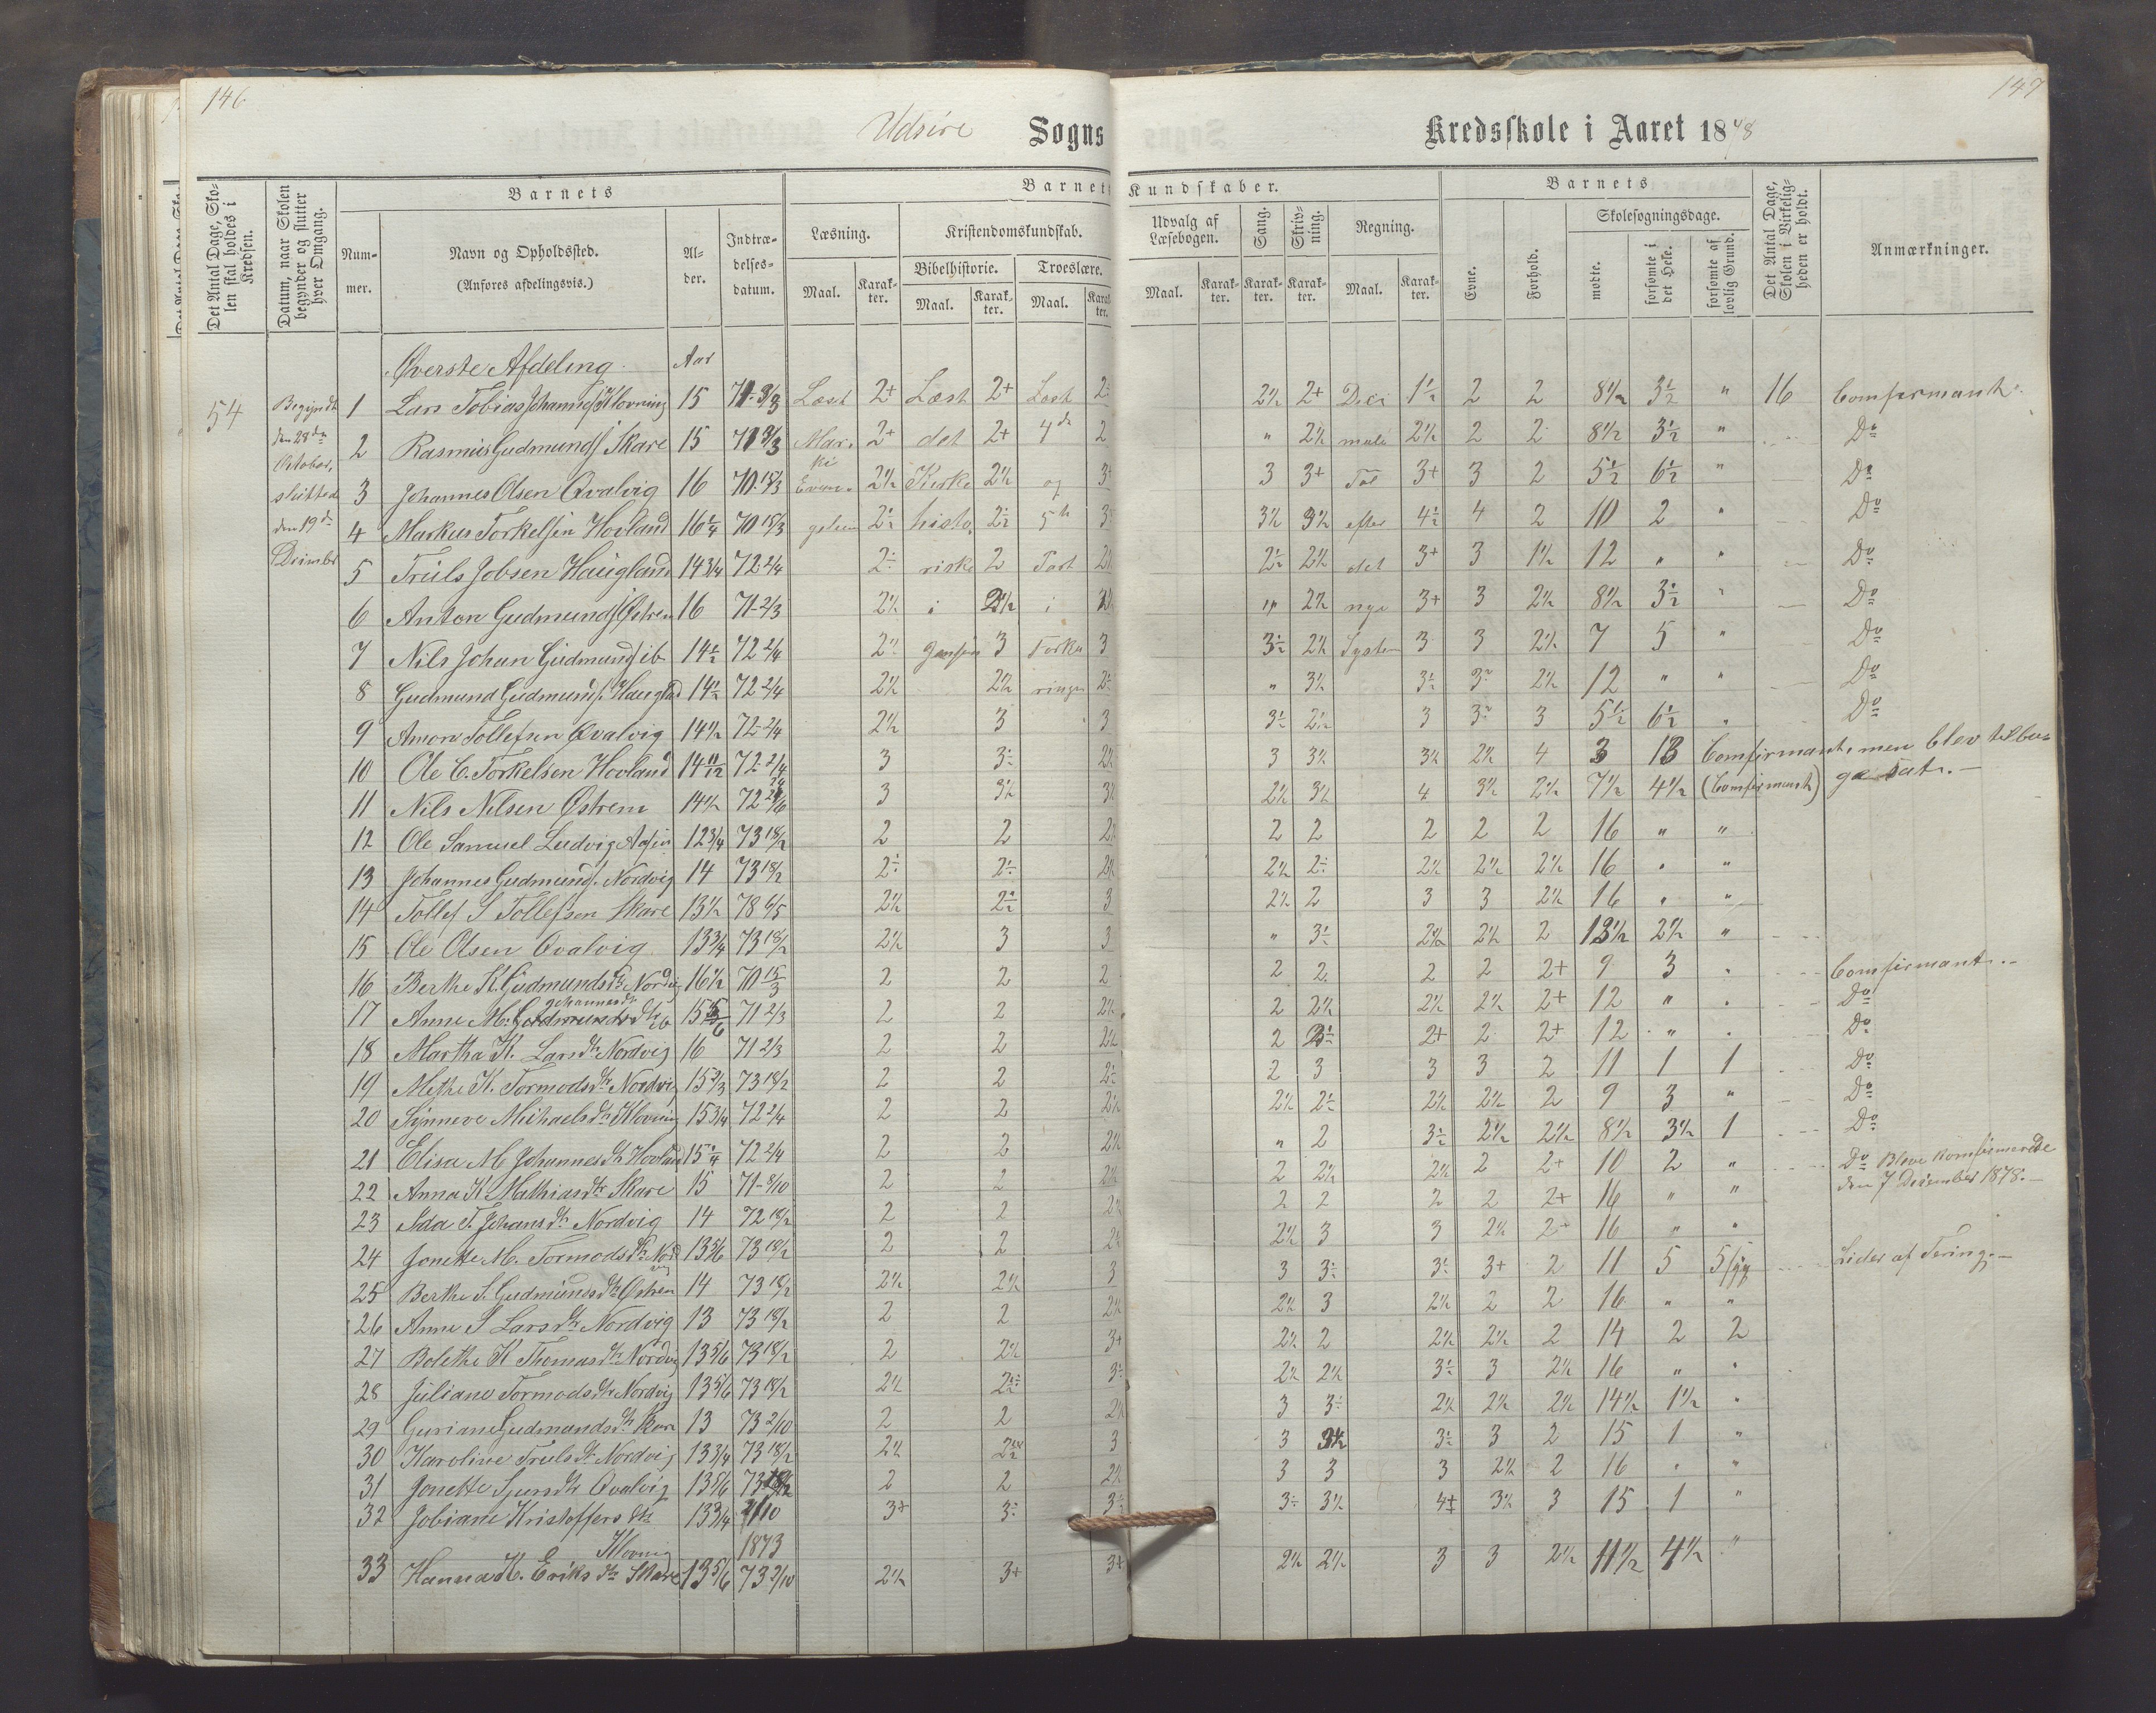 146
147
Udsire Sogns Kredsskole i Aaret 1848
Det Antal Dage, Skolen skal holdes i Kredsen.
Datum, naar Skolen begynder og slutter hver Omgang.
Barnets
Nummer.
Navn og Opholdssted.
(Anføres afdelingsvis.)
Alder.
Indtrædelsesdatum.
Barnets Kundskaber.
Læsning.
Maal.
Karakter.
Kristendomskundskab.
Bibelhistorie.
Maal.
Karakter.
Troeslære.
Maal.
Karakter.
Udvalg af Læsebogen.
Maal.
Karakter.
Sang.
Karakter.
Skrivning.
Karakter.
Regning.
Maal.
Karakter.
Barnets
Evne.
Forhold.
Skolesøgningsdage.
mødte.
forsømte i det Hele.
forsømte af lovlig Grund.
Det Antal Dage, Skolen i Virkeligheden er holdt.
Anmærkninger.
Øverste Afdeling. Aar
54 Begyndt 1 Lars Tobias Johannes Klovning 15 71-2/3 Læst 2+ Læst 2+ Læst 2 2½ 2+ Deci 1½ 2 2 8½ 3½ " 16 Comfirmant.
den 28de 2 Rasmus Gudmunds Skare 15 71 2/3 Mar- 2+ det 2+ 4de 2 " 2½ male 2½ 2 2 8½ 3½ " Do
October, ki
sluttede 3 Johannes Olsen Qvalvig 16 70-18/3 Evan- 2½ Kirke 2½ og 3+ 3 3+ Tal 3+ 3 2 5½ 6½ " Do
den 19de 4 Markus Torkelsen Hovland 16¼ 70 18/3 gelium 2½ histo- 2½ 5te 3 3½ 3½ efter 4½ 4 2 10 2 " Do
Decimber 5 Truls Jobsen Haugland 14¾ 72 2/4 2½ riske 2 Part 2½ 2½ 2½ det 3+ 3 1½ 12 " " Do
6 Anton Gudmunds Østrem 16 71-2/3 2½ i 2½ i " 2½ nye 3+ 3 2½ 8½ 3½ " Do
7 Nils Johan Gudmunds ib 14½ 72 2/4 2½ 3 Forkla 3 3½ 2½ System 3 3 2½ 7 5 " Do
8 Gudmund Gudmunds. Haugland 14½ 72 2/4 2½ 2½ ringen 2½ " 3½ 3½ 3 2½ 12 " " Do
9 Amon Tollefsen Qvalvig 14½ 72-2/4 2½ 3 3 3½ 2½ 3 3 3 5½ 6½ " Do
10 Ole C. Torkelsen Hovland 14 11/12 72-2/4 3 3½ 2½ 3 3½ 3½ 2½ 4 3 13 Comfirmant, men blev tilba-
11 Nils Nilsen Østrem 14½ 72 3 3½ 3½ 2½ 3½ 4 3½ 2½ 7½ 4½ (Comfirmant) ge sat.-
12 Ole Samuel Ludvig Aasen 12¾ 73 18/2 2 2 2½ 2 2 2 2 2 16 " "
13 Johannes Gudmunds. Nordvig 14 73 18/2 2½ 2½ 2½ 2½ 2½ 2½ 2½ 2½ 16 " "
14 Tollef S Tollefsen Skare 13½ 78 6/5 2½ 2½ 3 2½ 2 3 3 2½ 16 " "
15 Ole Olsen Qvalvig 13¾ 73 18/2 2½ 3 3 " 3½ 2½ 2½ 2 13½ 2½ "
16 Berthe K. Gudmundsdtr Nordvig 16½ 70 15/3 2 2 2 2 2 2 2 2+ 9 3 " Comfirmant.-
17 Anne M. Johannesdtr ib 15 5/6 71 2/3 2 2 2½ 2 2½ 2½ 2½ 2+ 12 " " Do
18 Martha K. Larsdtr Nordvig 16 71 2/3 2 2 2½ 2 3½ 2+ 2 2+ 12 " " Do
19 Methe K. Tormodsdtr Nordvig 15 2/3 73 18/2 2 2 2½ 2 3 3 3 2 11 1 1 Do
20 Synneve Michaelsdtr Klovning 15¾ 72 2/4 2 2 2½ 2½ 2½ 2½ 2½ 2 9 3 " Do
21 Elisa M Johannesdtr Hovland 15¼ 72 2/4 2 2 2½ " 2 3½ 2½ 2½ 8½ 3½ 1 Do
22 Anna K. Mathiasdtr Skare 15 71-8/10 2 2 2½ 2 2½ 2½ 2 2+ 10 2 " Do Bleve Komfirmerede
23 Ada T. Johansdtr Nordvig 14 72 18/2 2 2 2½ 2 2 2 2 2+ 16 " " den 7 December 1878.-
24 Jonette M. Tormodsdtr Nordvig 13 5/6 73 18/2 2 2 2½ 2½ 3 3 2½ 2+ 16 " "
25 Berthe S. Gudmundsdtr Østrem 14 73 18/2 2½ 2½ 3 3 3½ 3½ 3+ 2 11 5 5 syg Lider af Tering.-
26 Anne S Larsdtr Nordvig 13 73 18/2 2 2 2½ 2½ 3 2½ 2 2 16 " "
27 Bolethe K Thomasdtr Nordvig 13 5/6 73 18/2 2 2½ 3+ 2½ 2 2½ 2½ 2 14 2 2
28 Juliane Tormodsdtr Nordvig 13 5/6 73 18/2 2½ 2½ 3½ 2½ 2½ 3½ 3 2½ 16 " "
29 Guriane Gudmundsdtr Skare 13 73 2/10 2 2 2½ 3 3½ 2½ 2½ 2½ 14½ 1½ "
30 Karoline Trulsdtr Nordvig 13¾ 73 18/2 2½ 2½ 3 3 3½ 3½ 3 2 15 1 "
31 Jonette Sjursdtr Qvalvig 13 5/6 73 18/2 2 2 2½ 3 3 3 2½ 2 16 " "
32 Jobiane Kristoffersdtr 13¾ 2/10 3+ 3½ 3½ 3½ 3½ 4+ 3½ 3 15 1 "
Klovning 1873
33 Hanna K. Eriksdtr Skare 13 5/6 73 2/10 2½ 3+ 3+ 2½ 2½ 3 3 2½ 11½ 4½ "